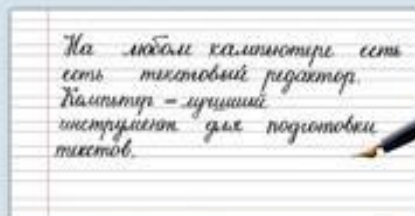 На любом компьютере есть
есть текстовый редактор.
Компьтер – лучший
инструмент для подготовки
текстов.